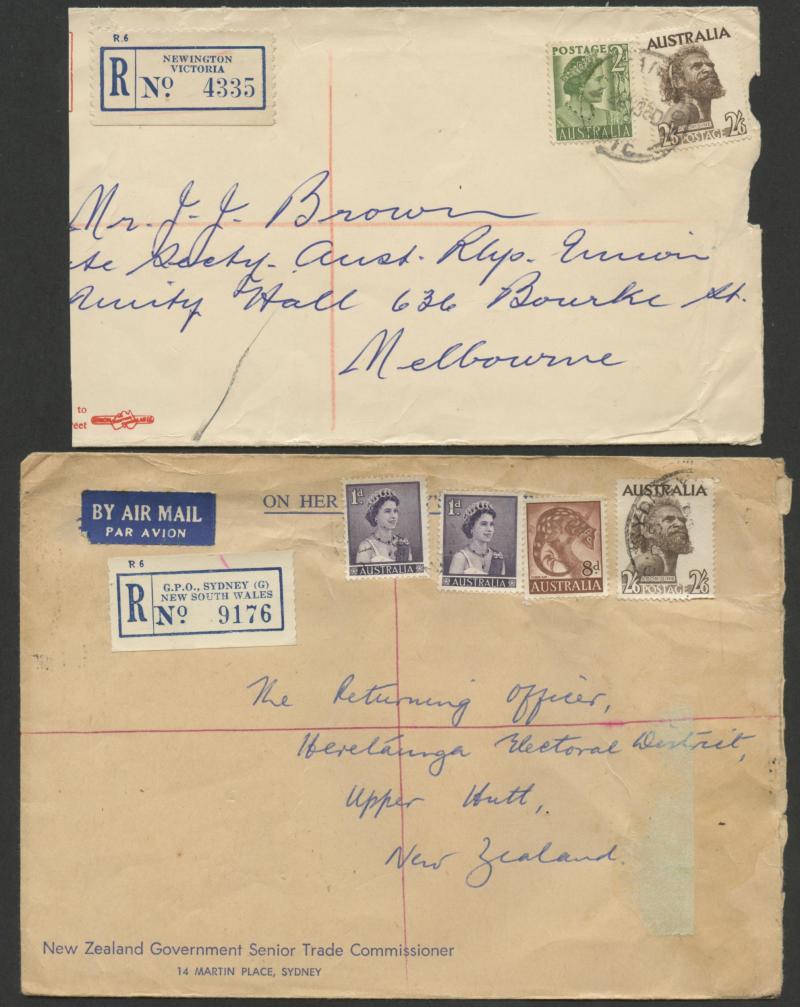 R.6
NEWINGTON
VICTORIA
R No 4335
POSTAGE 2d
AUSTRALIA
AUSTRALIA
2/6 POSTAGE 2/6
Mr. J. J. Brown
te Secty. Aust. Rlys. Union
Unity Hall 636 Bourke St.
Melbourne
to
eet
BY AIR MAIL
PAR AVION
ON HER
1d.
AUSTRALIA
1d.
AUSTRALIA
8d
AUSTRALIA
AUSTRALIA
ABORIGINE
2/6 POSTAGE 2/6
R 6
G.P.O., SYDNEY (G)
NEW SOUTH WALES
R No 9176
The Returning Officer,
Heretaunga Electoral District,
Upper Hutt,
New Zealand.
New Zealand Government Senior Trade Commissioner
14 MARTIN PLACE, SYDNEY